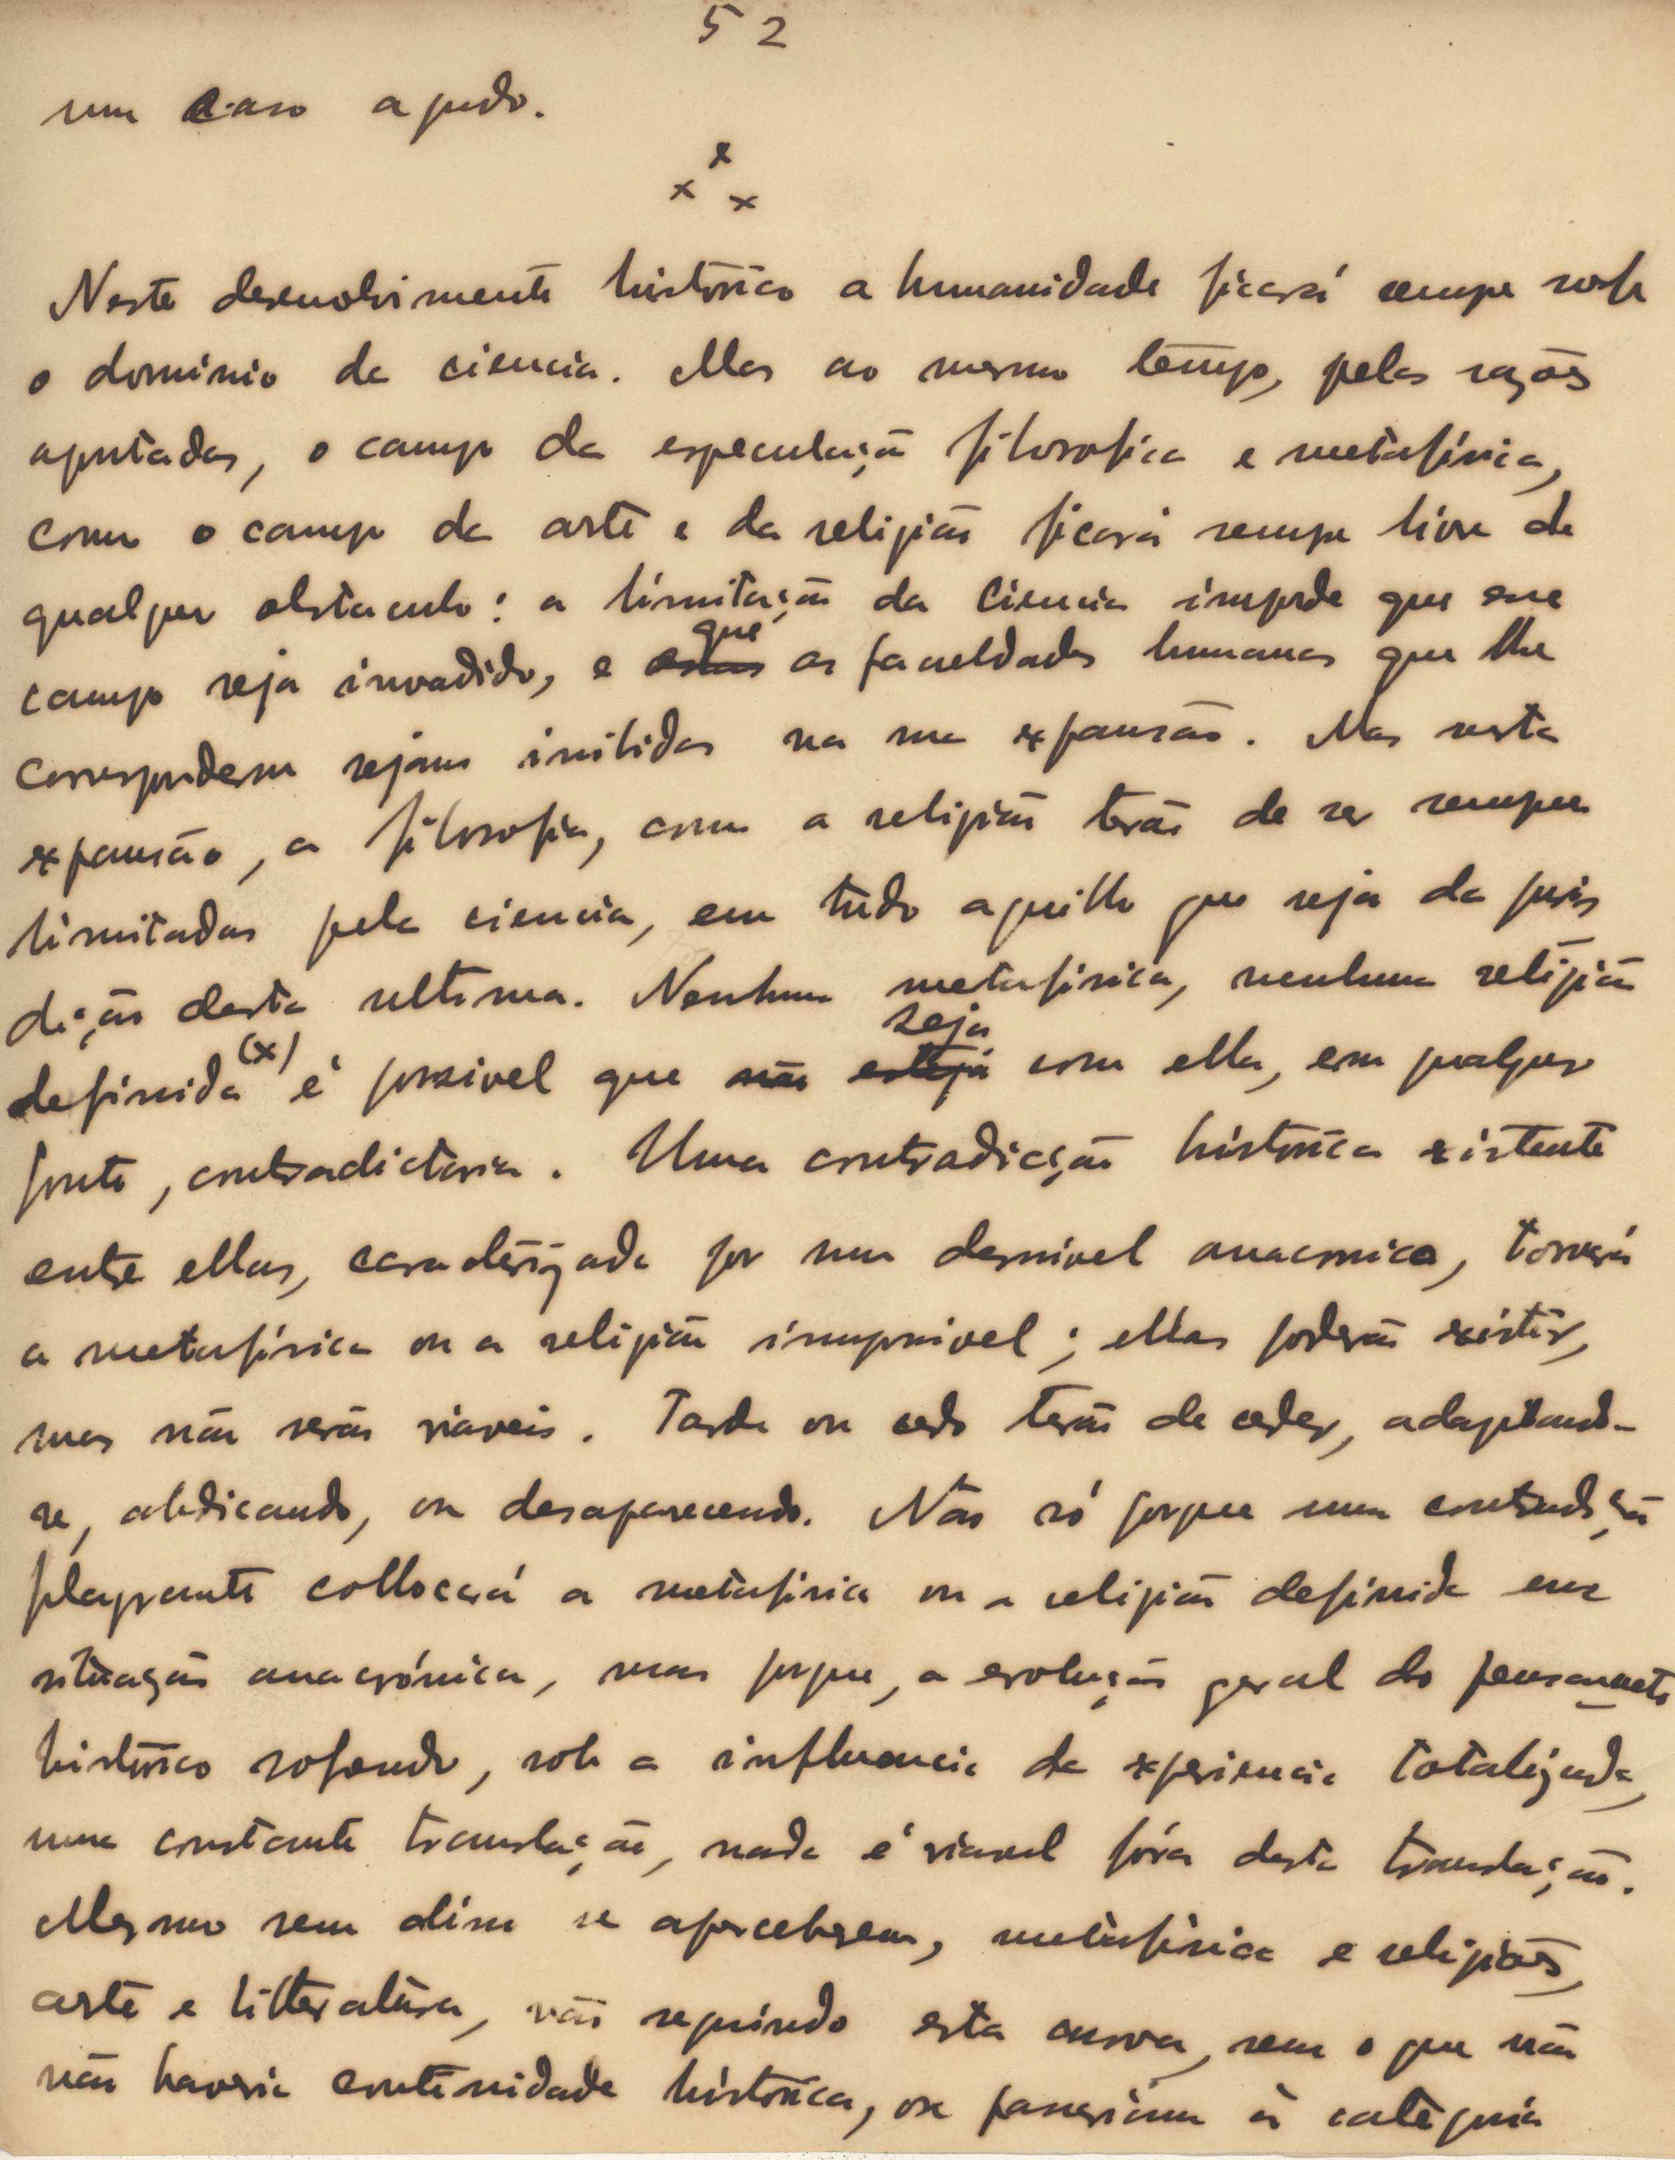 52
um caso agudo.
x x x
Neste desenvolvimento historico a humanidade ficará sempre sob
o dominio da ciencia. Mas ao mesmo tempo, pelas razões
apontadas, o campo da especulação filosofica e metafisica,
como o campo da arte e da religião ficará sempre livre de
qualquer obstaculo: a limitação da Ciencia impede que esse
campo seja invadido, e que as faculdades humanas que lhe
correspondem sejam inibidas na sua expansão. Mas nesta
expansão, a filosofia, como a religião terão de ser sempre
limitadas pela ciencia, em tudo aquillo que seja da juris
dição desta ultima. Nenhuma metafisica, nenhuma religião
definida (x) é possivel que não seja com ella, em qualquer
ponto, contradictoria. Uma contradicção historica existente
entre ellas, caracterizada por um desnivel anacronico, tornará
a metafisica ou a religião impossivel; ellas poderão existir,
mas não serão viaveis. Tarde ou cedo terão de ceder, adaptando-
se, abdicando, ou desaparecendo. Não só porque uma contradição
flagrante collocará a metafisica ou a religião definida em
situação anacrónica, mas porque, a evolução geral do pensamento
historico sofrendo, sob a influencia da experiencia totalizada,
uma constante translação, nada é viavel fóra desta translação.
Mesmo sem d'isso se aperceberem, metafisica e religiões,
arte e litteratura, vão seguindo esta curva, sem o que não
não haveria continuidade historica, ou passariam á categoria